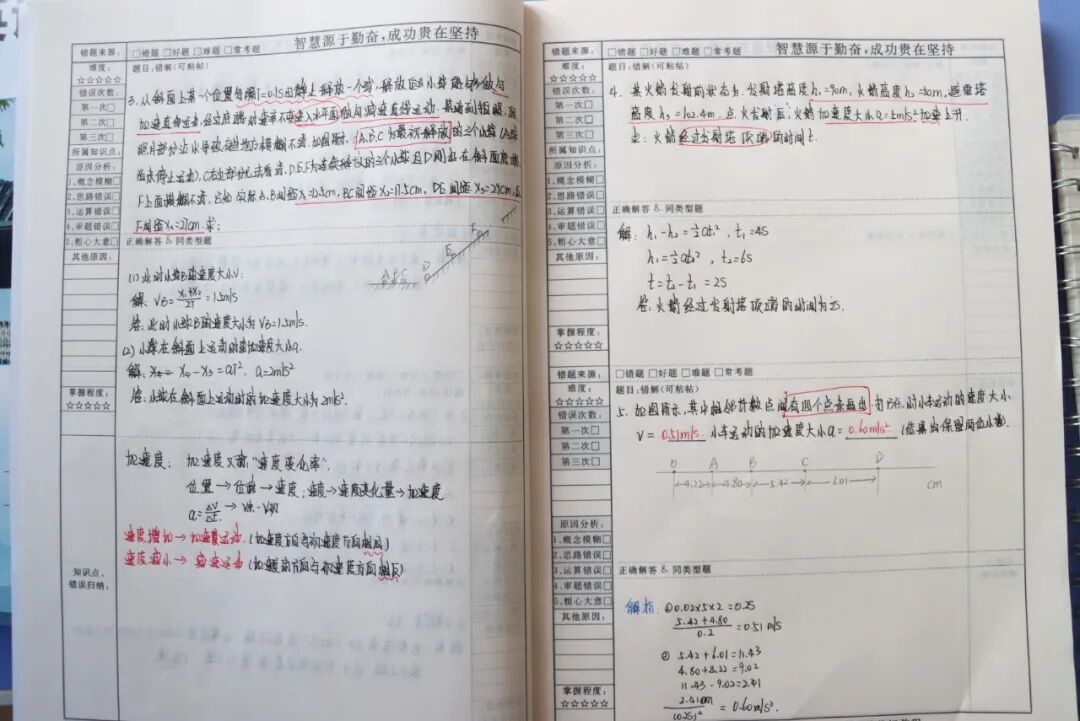 智慧源于勤奋,成功贵在坚持
错题来源: □错题 □好题 □难题 □常考题
难度: 题目:错解(可粘帖)
☆☆☆☆☆
错误次数:
第一次□
第二次□
第三次□
所属知识点:
原因分析:
1.概念模糊□
2.思路错误□
3.运算错误□
4.审题错误□
5.粗心大意□
其他原因:
3.从斜面上某一个位置每隔T=0.1s由静止释放一个球,释放后小球做匀
加速直线运动,
照片部分
F上面模糊不清,已知实际A、B间距X₁=12.5cm,BC间距X₂=17.5cm,DE间距X₃=29cm,E
F间距X₄=27cm.求:
正确解答 & 同类型题
A B C D E F
(1)此时小球B的速度大小V:
解:VB=(x₁+x₂)/2T=1.5m/s
答:此时小球B的速度大小为VB=1.5m/s.
(2)小球在斜面上运动的加速度大小a.
解: X₄-X₃=aT². a=2m/s²
答:小球在斜面上运动时的加速度大小为2m/s².
掌握程度:
☆☆☆☆☆
知识点、
错误归纳:
加速度: 加速度又称"速度变化率".
位置→位移→速度,速度→速度变化量→加速度
a=ΔV/Δt.→V末-V初
速度增加→加速运动.(加速度方向与初速度方向相同)
速度减小→减速运动(加速度方向与初速度方向相反)
智慧源于勤奋,成功贵在坚持
错题来源: □错题 □好题 □难题 □常考题
难度: 题目:错解(可粘帖)
☆☆☆☆☆
错误次数:
第一次□
第二次□
第三次□
所属知识点:
原因分析:
1.概念模糊□
2.思路错误□
3.运算错误□
4.审题错误□
5.粗心大意□
其他原因:
4.某火箭发射前状态为:发射塔高度h₁=90m,火箭高度h₂=50m,
高度h₃=102.4m.点火发射后,火箭加速度大小a=5m/s²加速上升.
求:火箭经过发射塔顶端的时间t.
正确解答 & 同类型题
解:h₁-h₂=½at₁²,t₁=4s
h₁=½at₂²,t₂=6s
t=t₂-t₁=2s
答:火箭经过发射塔顶端的时间为2s.
掌握程度:
☆☆☆☆☆
错题来源: □错题 □好题 □难题 □常考题
难度: 题目:错解(可粘帖)
☆☆☆☆☆
错误次数:
第一次□
第二次□
第三次□
5.如图所示,其中相邻计数点间有四个点未画出.打B点时小车运动的速度大小
V=0.51m/s.小车运动的加速度大小a=0.60m/s².(结果均保留两位小数)
O A B C D
4.22 4.80 5.42 6.01 cm
原因分析:
1.概念模糊□
2.思路错误□
3.运算错误□
4.审题错误□
5.粗心大意□
其他原因:
正确解答 & 同类型题
解析:①0.02×5×2=0.2S
(5.42+4.80)/0.2=0.51m/s
②5.42+6.01=11.43
4.80+4.22=9.02
11.43-9.02=2.41
2.41cm/(0.2s)²=0.60m/s².
掌握程度:
☆☆☆☆☆